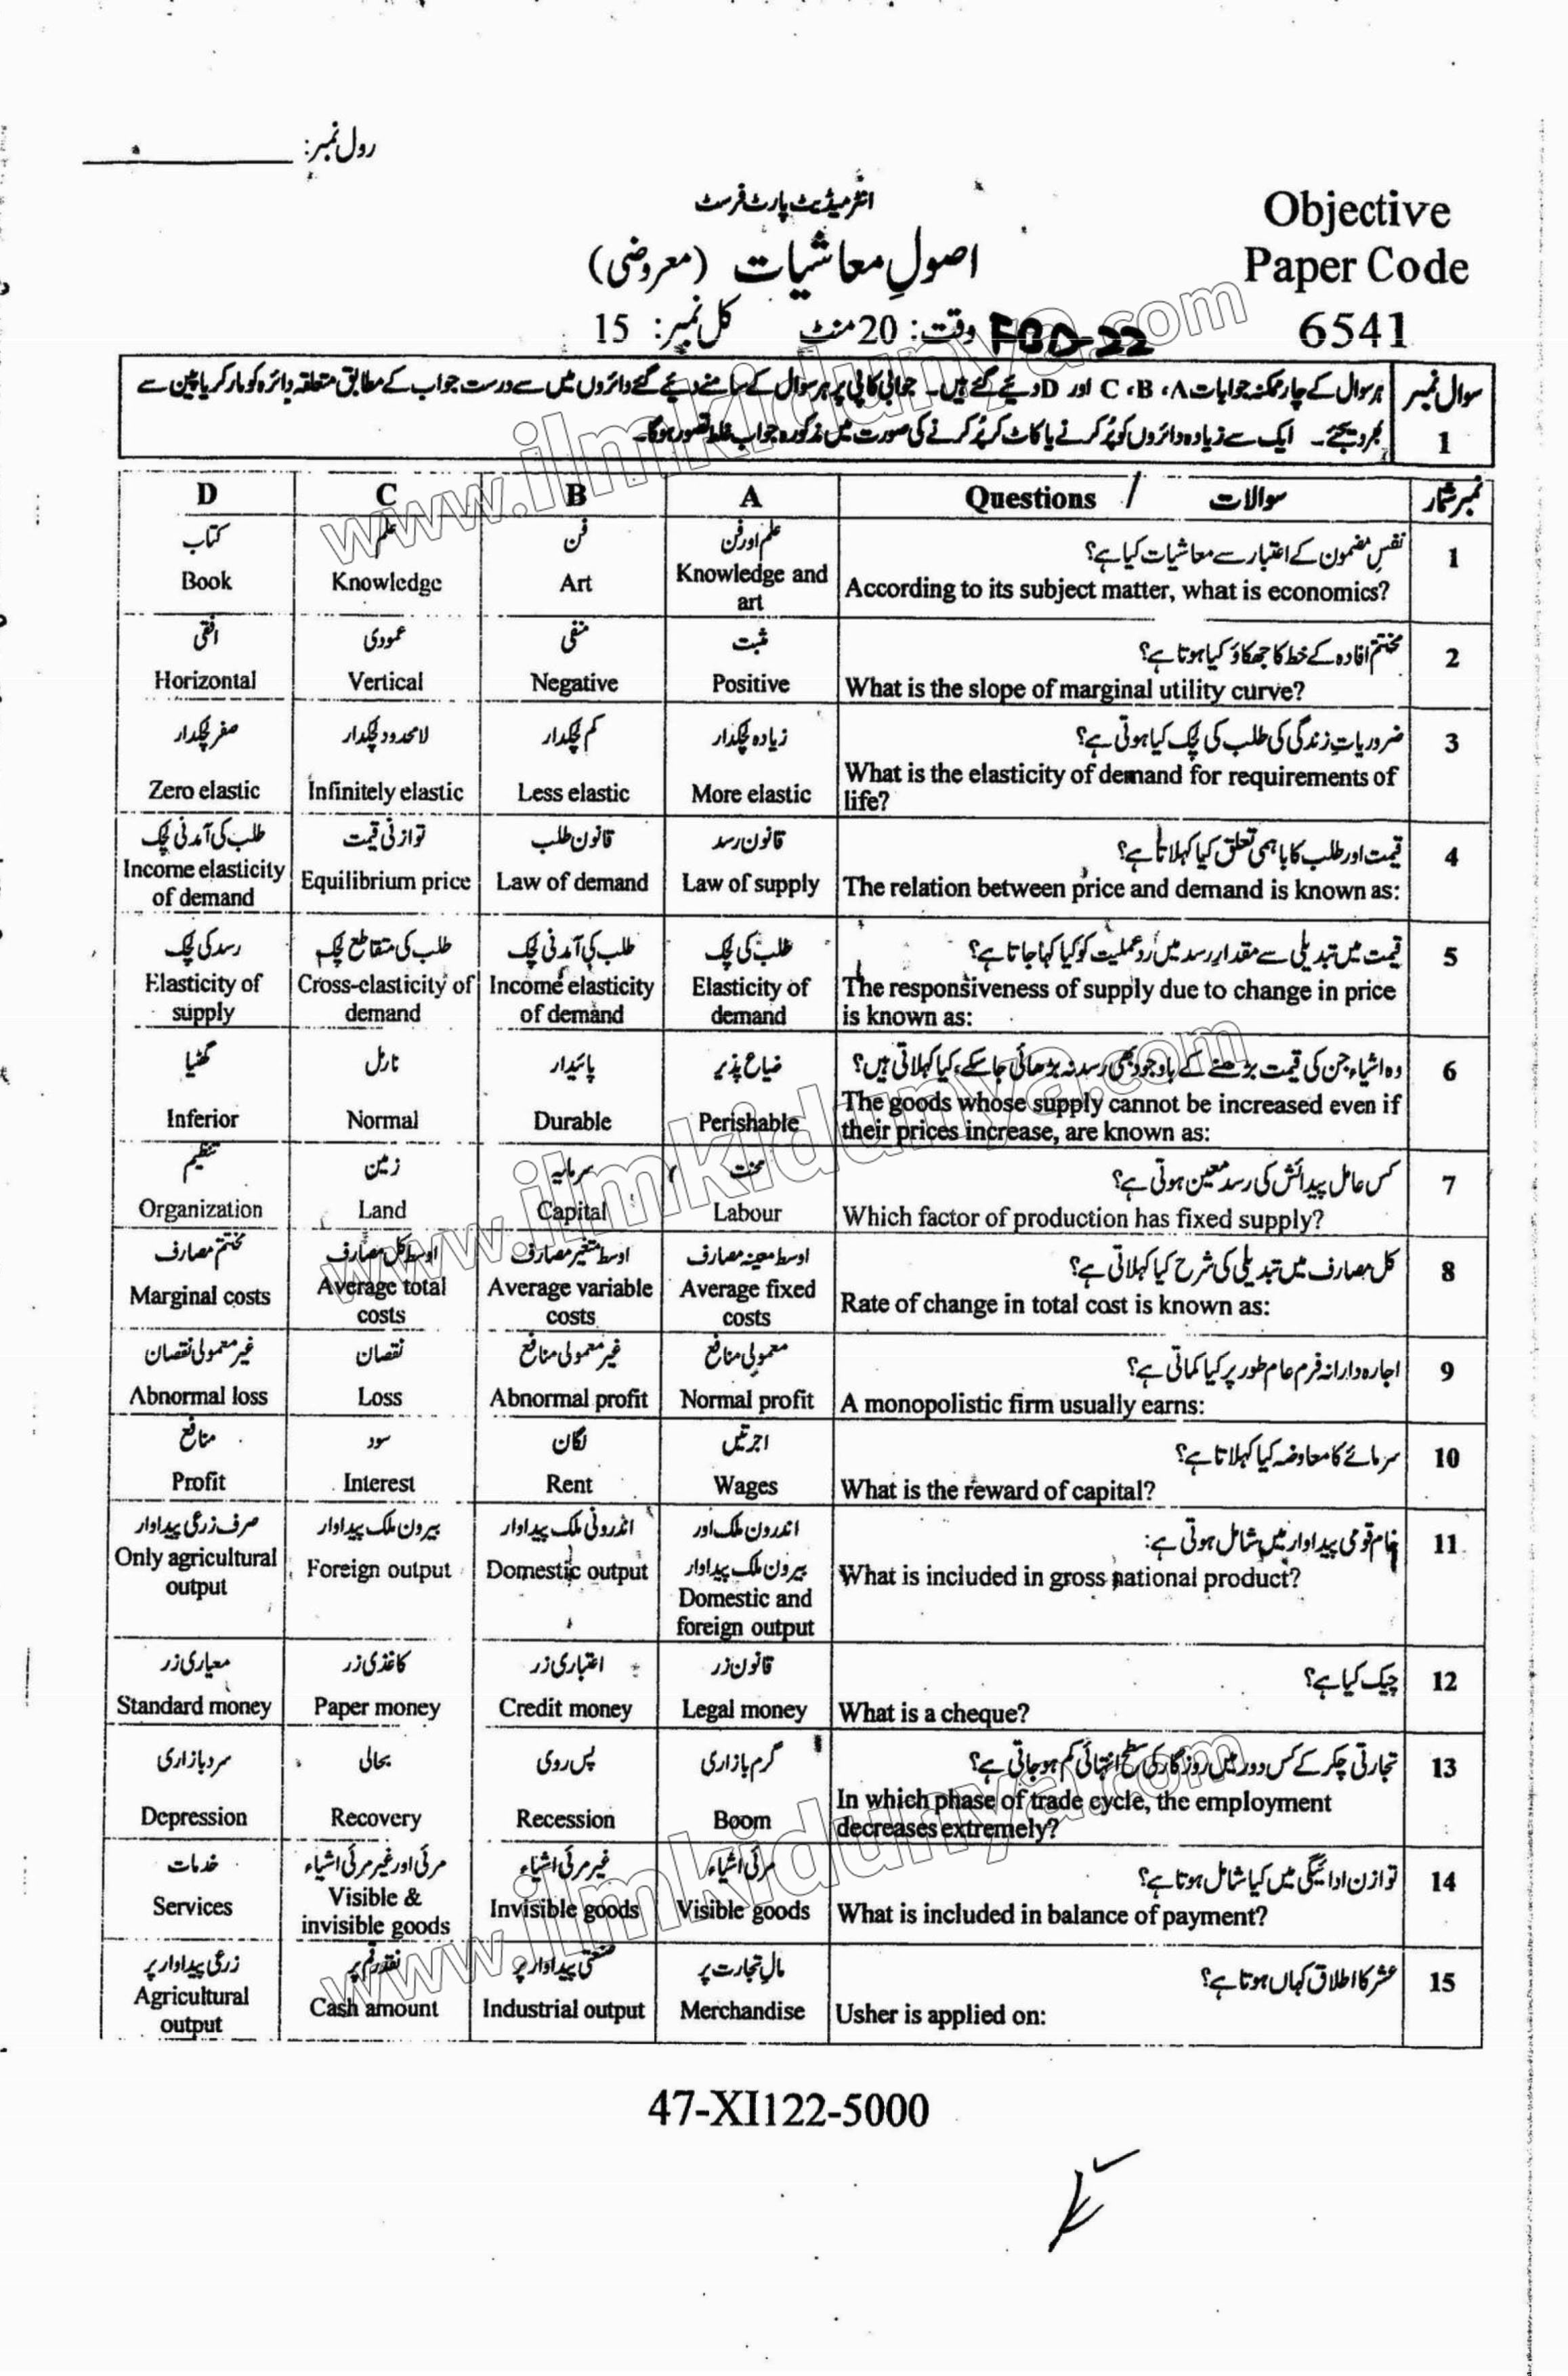 رول نمبر:
انٹرمیڈیٹ پارٹ فرسٹ
Objective
اصولِ معاشیات (معروضی)
Paper Code
6541
FBD-22
وقت: 20 منٹ
کل نمبر: 15
سوال نمبر 1
ہر سوال کے چار ممکنہ جوابات A، B، C اور D دیئے گئے ہیں۔ جوابی کاپی پر ہر سوال کے سامنے دیئے گئے دائروں میں سے درست جواب کے مطابق متعلقہ دائرہ کو مارکر یا پین سے
بھر دیجئے۔ ایک سے زیادہ دائروں کو پُر کرنے یا کاٹ کر پُر کرنے کی صورت میں مذکورہ جواب غلط تصور ہوگا۔
نمبر شمار
سوالات / Questions
A
B
C
D
1
نفسِ مضمون کے اعتبار سے معاشیات کیا ہے؟
According to its subject matter, what is economics?
علم اور فن
Knowledge and
art
فن
Art
علم
Knowledge
کتاب
Book
2
مختتم افادہ کے خط کا جھکاؤ کیا ہوتا ہے؟
What is the slope of marginal utility curve?
مثبت
Positive
منفی
Negative
عمودی
Vertical
افقی
Horizontal
3
ضروریاتِ زندگی کی طلب کی لچک کیا ہوتی ہے؟
What is the elasticity of demand for requirements of
life?
زیادہ لچکدار
More elastic
کم لچکدار
Less elastic
لامحدود لچکدار
Infinitely elastic
صفر لچکدار
Zero elastic
4
قیمت اور طلب کا باہمی تعلق کیا کہلاتا ہے؟
The relation between price and demand is known as:
قانون رسد
Law of supply
قانون طلب
Law of demand
توازنی قیمت
Equilibrium price
طلب کی آمدنی لچک
Income elasticity
of demand
5
قیمت میں تبدیلی سے مقدارِ رسد میں ردِعملیت کو کیا کہا جاتا ہے؟
The responsiveness of supply due to change in price
is known as:
طلب کی لچک
Elasticity of
demand
طلب کی آمدنی لچک
Income elasticity
of demand
طلب کی متقاطع لچک
Cross-elasticity of
demand
رسد کی لچک
Elasticity of
supply
6
وہ اشیاء جن کی قیمت بڑھنے کے باوجود بھی رسد نہ بڑھائی جا سکے، کیا کہلاتی ہیں؟
The goods whose supply cannot be increased even if
their prices increase, are known as:
ضیاع پذیر
Perishable
پائیدار
Durable
نارمل
Normal
گھٹیا
Inferior
7
کس عامل پیدائش کی رسد معین ہوتی ہے؟
Which factor of production has fixed supply?
محنت
Labour
سرمایہ
Capital
زمین
Land
تنظیم
Organization
8
کل مصارف میں تبدیلی کی شرح کیا کہلاتی ہے؟
Rate of change in total cost is known as:
اوسط معینہ مصارف
Average fixed
costs
اوسط متغیر مصارف
Average variable
costs
اوسط کل مصارف
Average total
costs
مختتم مصارف
Marginal costs
9
اجارہ دارانہ فرم عام طور پر کیا کماتی ہے؟
A monopolistic firm usually earns:
معمولی منافع
Normal profit
غیر معمولی منافع
Abnormal profit
نقصان
Loss
غیر معمولی نقصان
Abnormal loss
10
سرمائے کا معاوضہ کیا کہلاتا ہے؟
What is the reward of capital?
اجرتیں
Wages
لگان
Rent
سود
Interest
منافع
Profit
11
خام قومی پیداوار میں شامل ہوتی ہے:
What is included in gross national product?
اندرون ملک اور
بیرون ملک پیداوار
Domestic and
foreign output
اندرونی ملک پیداوار
Domestic output
بیرون ملک پیداوار
Foreign output
صرف زرعی پیداوار
Only agricultural
output
12
چیک کیا ہے؟
What is a cheque?
قانون زر
Legal money
اعتباری زر
Credit money
کاغذی زر
Paper money
معیاری زر
Standard money
13
تجارتی چکر کے کس دور میں روزگار کی سطح انتہائی کم ہو جاتی ہے؟
In which phase of trade cycle, the employment
decreases extremely?
گرم بازاری
Boom
پس روی
Recession
بحالی
Recovery
سرد بازاری
Depression
14
توازن ادائیگی میں کیا شامل ہوتا ہے؟
What is included in balance of payment?
مرئی اشیاء
Visible goods
غیر مرئی اشیاء
Invisible goods
مرئی اور غیر مرئی اشیاء
Visible &
invisible goods
خدمات
Services
15
عشر کا اطلاق کہاں ہوتا ہے؟
Usher is applied on:
مالِ تجارت پر
Merchandise
صنعتی پیداوار پر
Industrial output
نقد رقم پر
Cash amount
زرعی پیداوار پر
Agricultural
output
47-XI122-5000
www.ilmkidunya.com
www.ilmkidunya.com
www.ilmkidunya.com